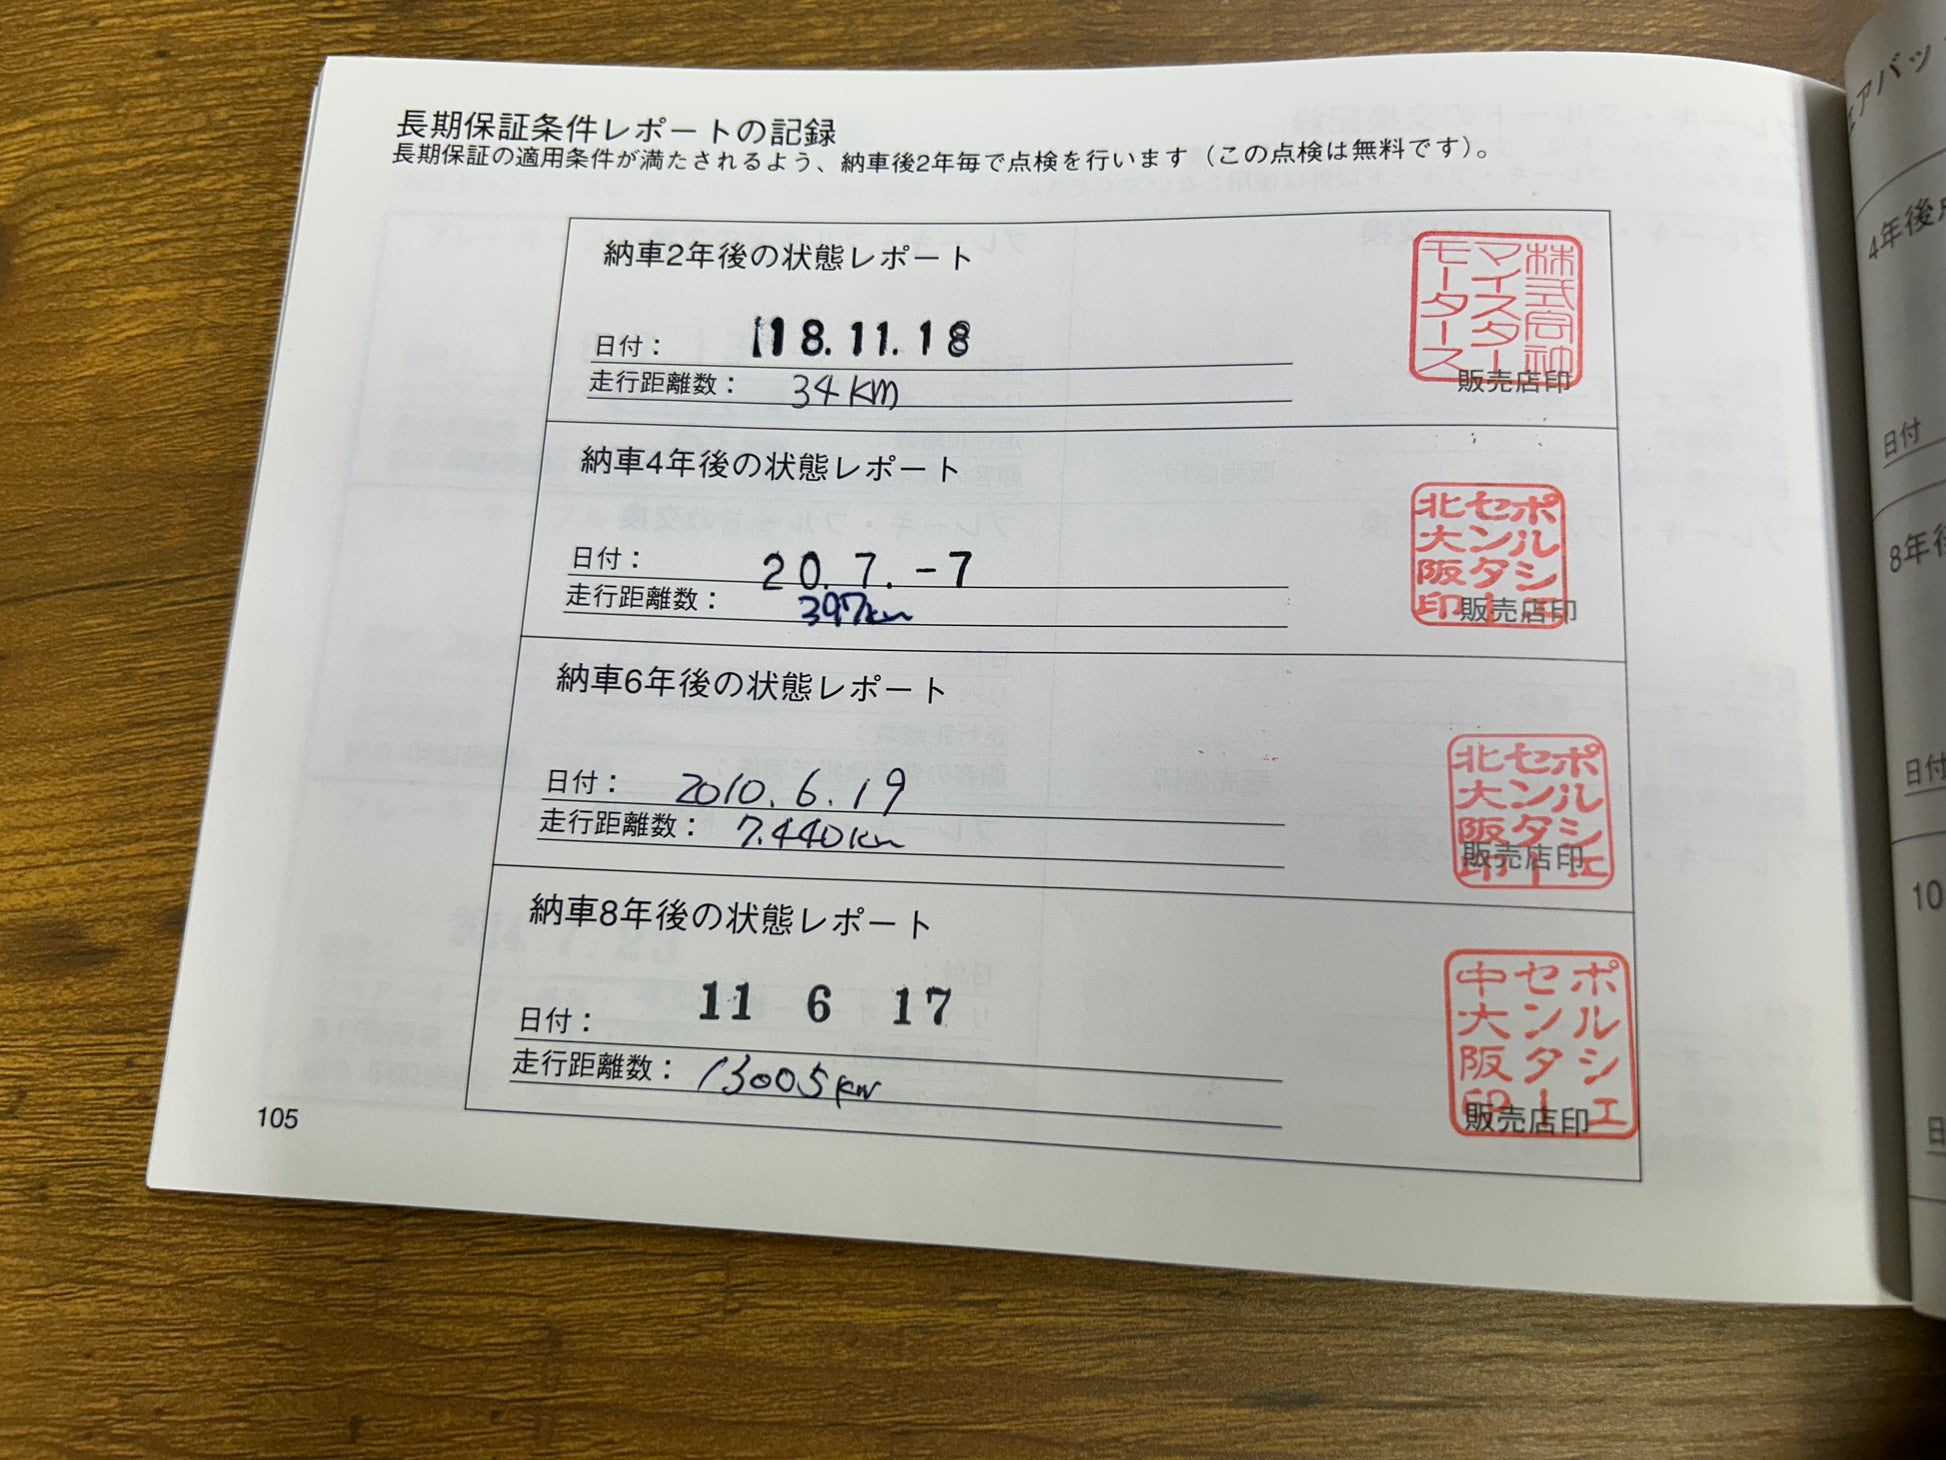 長期保証条件レポートの記録
長期保証の適用条件が満たされるよう、納車後2年毎で点検を行います（この点検は無料です）。
納車2年後の状態レポート
日付： 18.11.18
走行距離数： 34km
株式会社
マイスター
モータース
販売店印
納車4年後の状態レポート
日付： 20.7.-7
走行距離数： 397km
ポルシェ
センター
北大阪印
販売店印
納車6年後の状態レポート
日付： 2010.6.19
走行距離数： 7.440km
ポルシェ
センター
北大阪印
販売店印
納車8年後の状態レポート
日付： 11 6 17
走行距離数： 13005km
ポルシェ
センター
中大阪印
販売店印
105
エアバッ
4年後
日付
8年後
日付
10
日